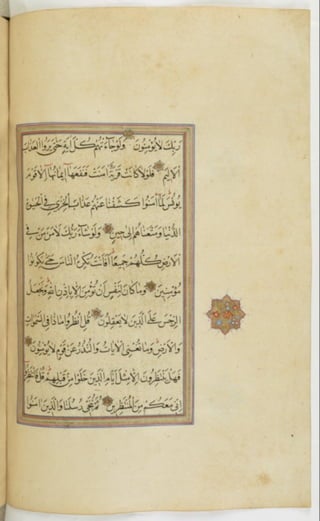 رَبِّكَ لَا يُؤْمِنُونَ وَلَوْ جَاءَتْهُمْ كُلُّ آيَةٍ حَتَّى يَرَوُا الْعَذَابَ
الْأَلِيمَ فَلَوْلَا كَانَتْ قَرْيَةٌ آمَنَتْ فَنَفَعَهَا إِيمَانُهَا إِلَّا قَوْمَ
يُونُسَ لَمَّا آمَنُوا كَشَفْنَا عَنْهُمْ عَذَابَ الْخِزْيِ فِي الْحَيَوةِ
الدُّنْيَا وَمَتَّعْنَاهُمْ إِلَى حِينٍ وَلَوْ شَاءَ رَبُّكَ لَآمَنَ مَنْ فِي
الْأَرْضِ كُلُّهُمْ جَمِيعًا أَفَأَنْتَ تُكْرِهُ النَّاسَ حَتَّى يَكُونُوا
مُؤْمِنِينَ وَمَا كَانَ لِنَفْسٍ أَنْ تُؤْمِنَ إِلَّا بِإِذْنِ اللَّهِ وَيَجْعَلُ
الرِّجْسَ عَلَى الَّذِينَ لَا يَعْقِلُونَ قُلِ انْظُرُوا مَاذَا فِي السَّمَوَاتِ
وَالْأَرْضِ وَمَا تُغْنِي الْآيَاتُ وَالنُّذُرُ عَنْ قَوْمٍ لَا يُؤْمِنُونَ
فَهَلْ يَنْتَظِرُونَ إِلَّا مِثْلَ أَيَّامِ الَّذِينَ خَلَوْا مِنْ قَبْلِهِمْ قُلْ فَانْتَظِرُوا
إِنِّي مَعَكُمْ مِنَ الْمُنْتَظِرِينَ ثُمَّ نُنَجِّي رُسُلَنَا وَالَّذِينَ آمَنُوا